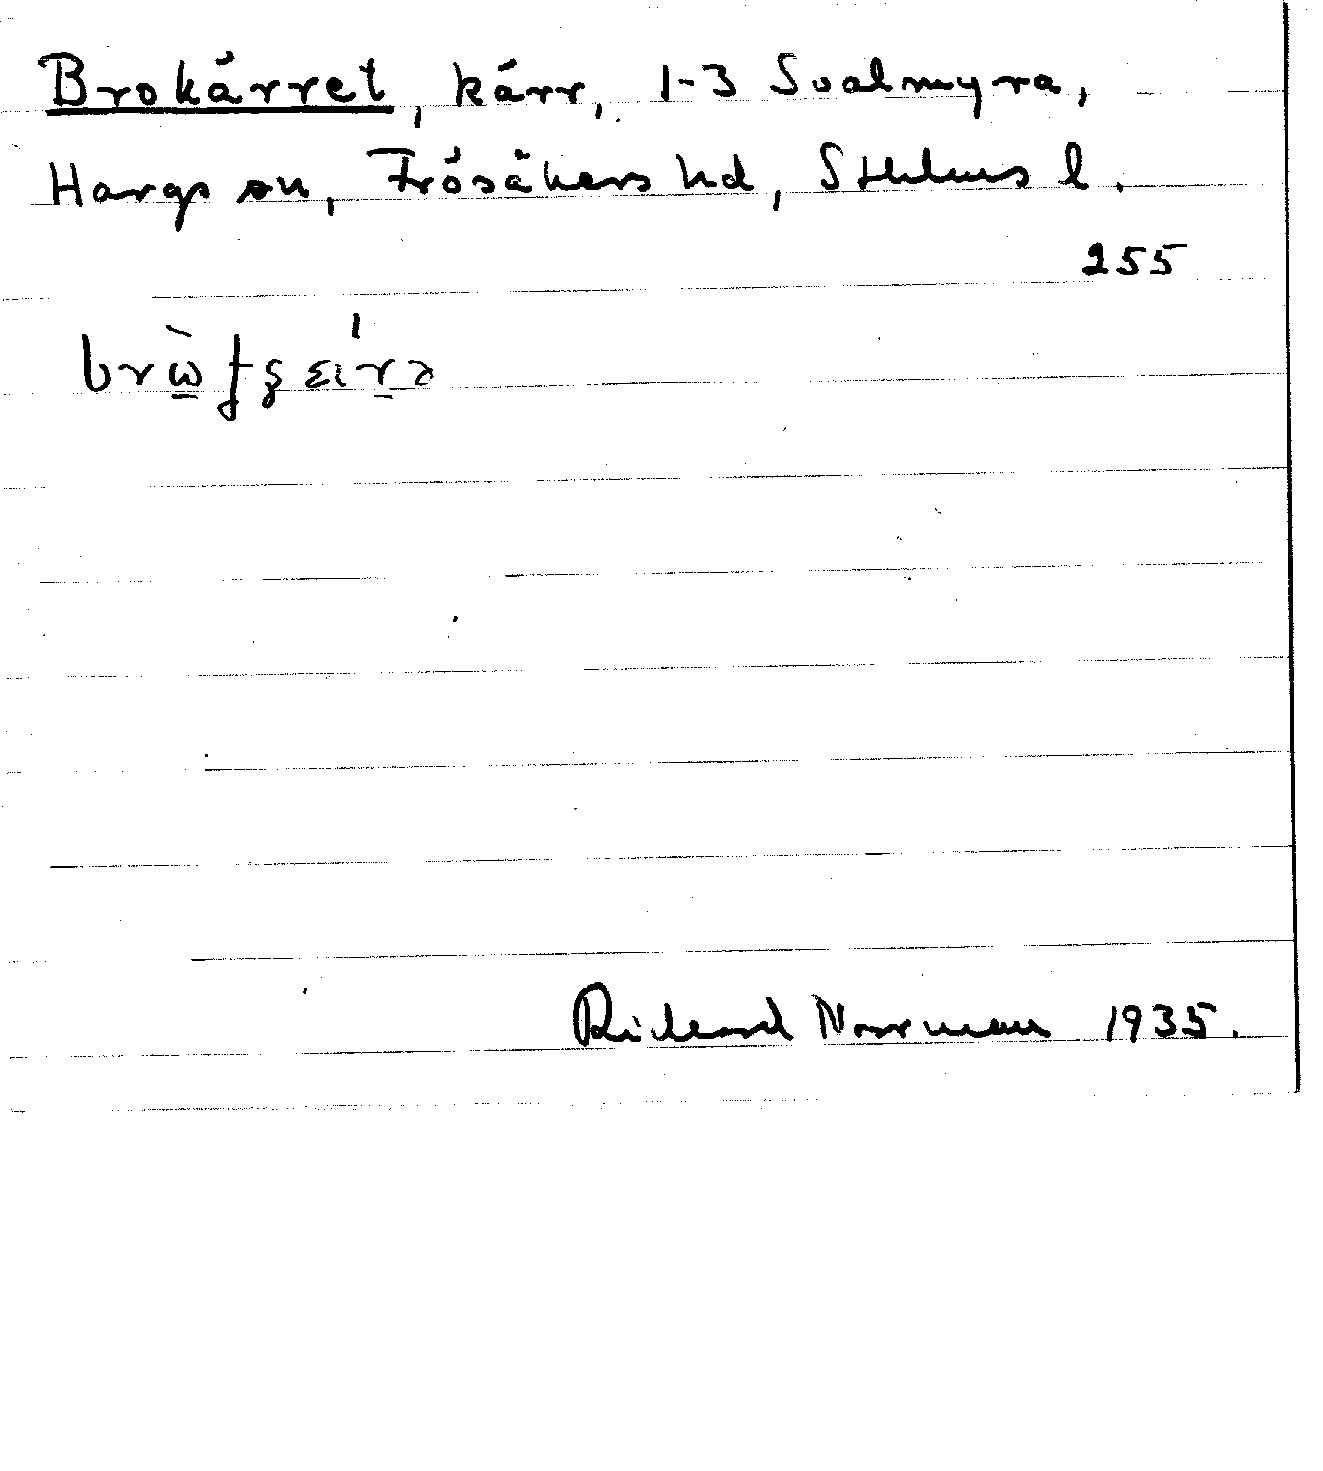 Brokärret, kärr, 1-3 Svalmyra,
Hargs sn, Frösåkers hd, Sthlms l.
255
Richard Norrman 1935.